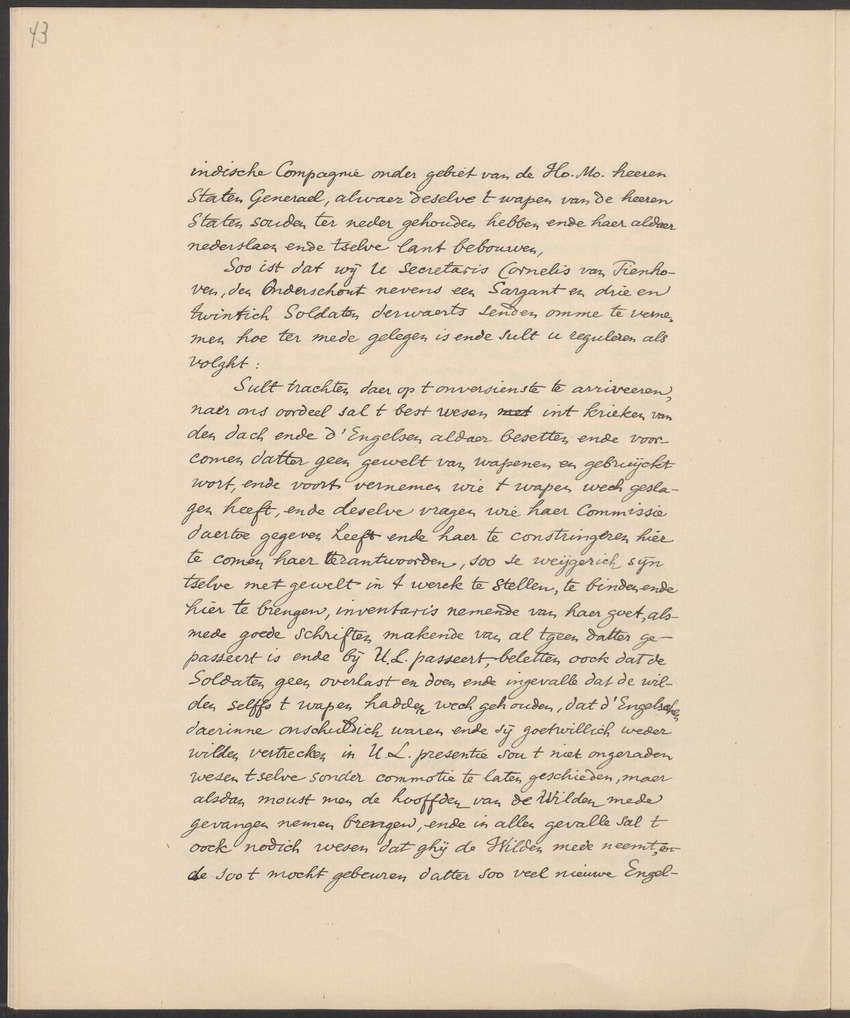 43
indische Compagnie onder gebiet van de Ho. Mo. heeren
Staten Generael, alwaer deselve t wapen van de heeren
Staten souden ter neder gehouden hebben ende haer aldaer
nederslaen ende tselve lant bebouwen,
Soo ist dat wij U Secretaris Cornelis van Tienho-
ven, den Onderschout nevens een Sargant en drie en
twintich Soldaten derwaerts senden omme te verne-
men hoe ter mede gelegen is ende sult u reguleren als
volght :
Sult trachten daer op t onversienste te arriveeren,
naer ons oordeel sal t best wesen met int krieken van
den dach ende d'Engelsen aldaer besetten ende voor-
comen datter geen gewelt van wapenen en gebruijckt
wort, ende voorts vernemen wie t wapen wech gesla-
gen heeft, ende deselve vragen wie haer Commissie
daertoe gegeven heeft ende haer te constringeren hier
te comen haer verantwoorden, soo se weijgerich sijn
tselve met gewelt in t werck te stellen, te binden ende
hier te brengen, inventaris nemende van haer goet, als-
mede goede schriften makende van al tgeen datter ge-
passeert is ende bij U.L. passeert, beletten oock dat de
Soldaten geen overlast en doen ende ingevalle dat de wil-
den selffs t wapen hadden wech gehouden, dat d'Engelschen
daerinne onschuldich waren ende sij goetwillich weder
wilden vertrecken in U.L. presentie sou t niet ongeraden
wesen tselve sonder commotie te laten geschieden, maer
alsdan moust men de hooffden van de Wilden mede
gevangen nemen brengen, ende in allen gevalle sal t
oock nodich wesen dat ghij de Wilden mede neemt, en-
de soo t mocht gebeuren datter soo veel nieuwe Engel-